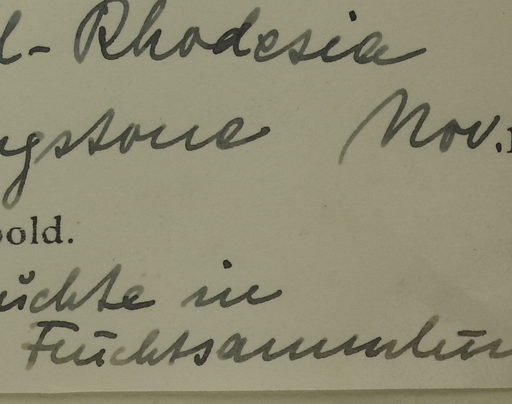 l- Rhodesia
ngstone Nov.1
bold.
üchte in
Fruchtsammlun